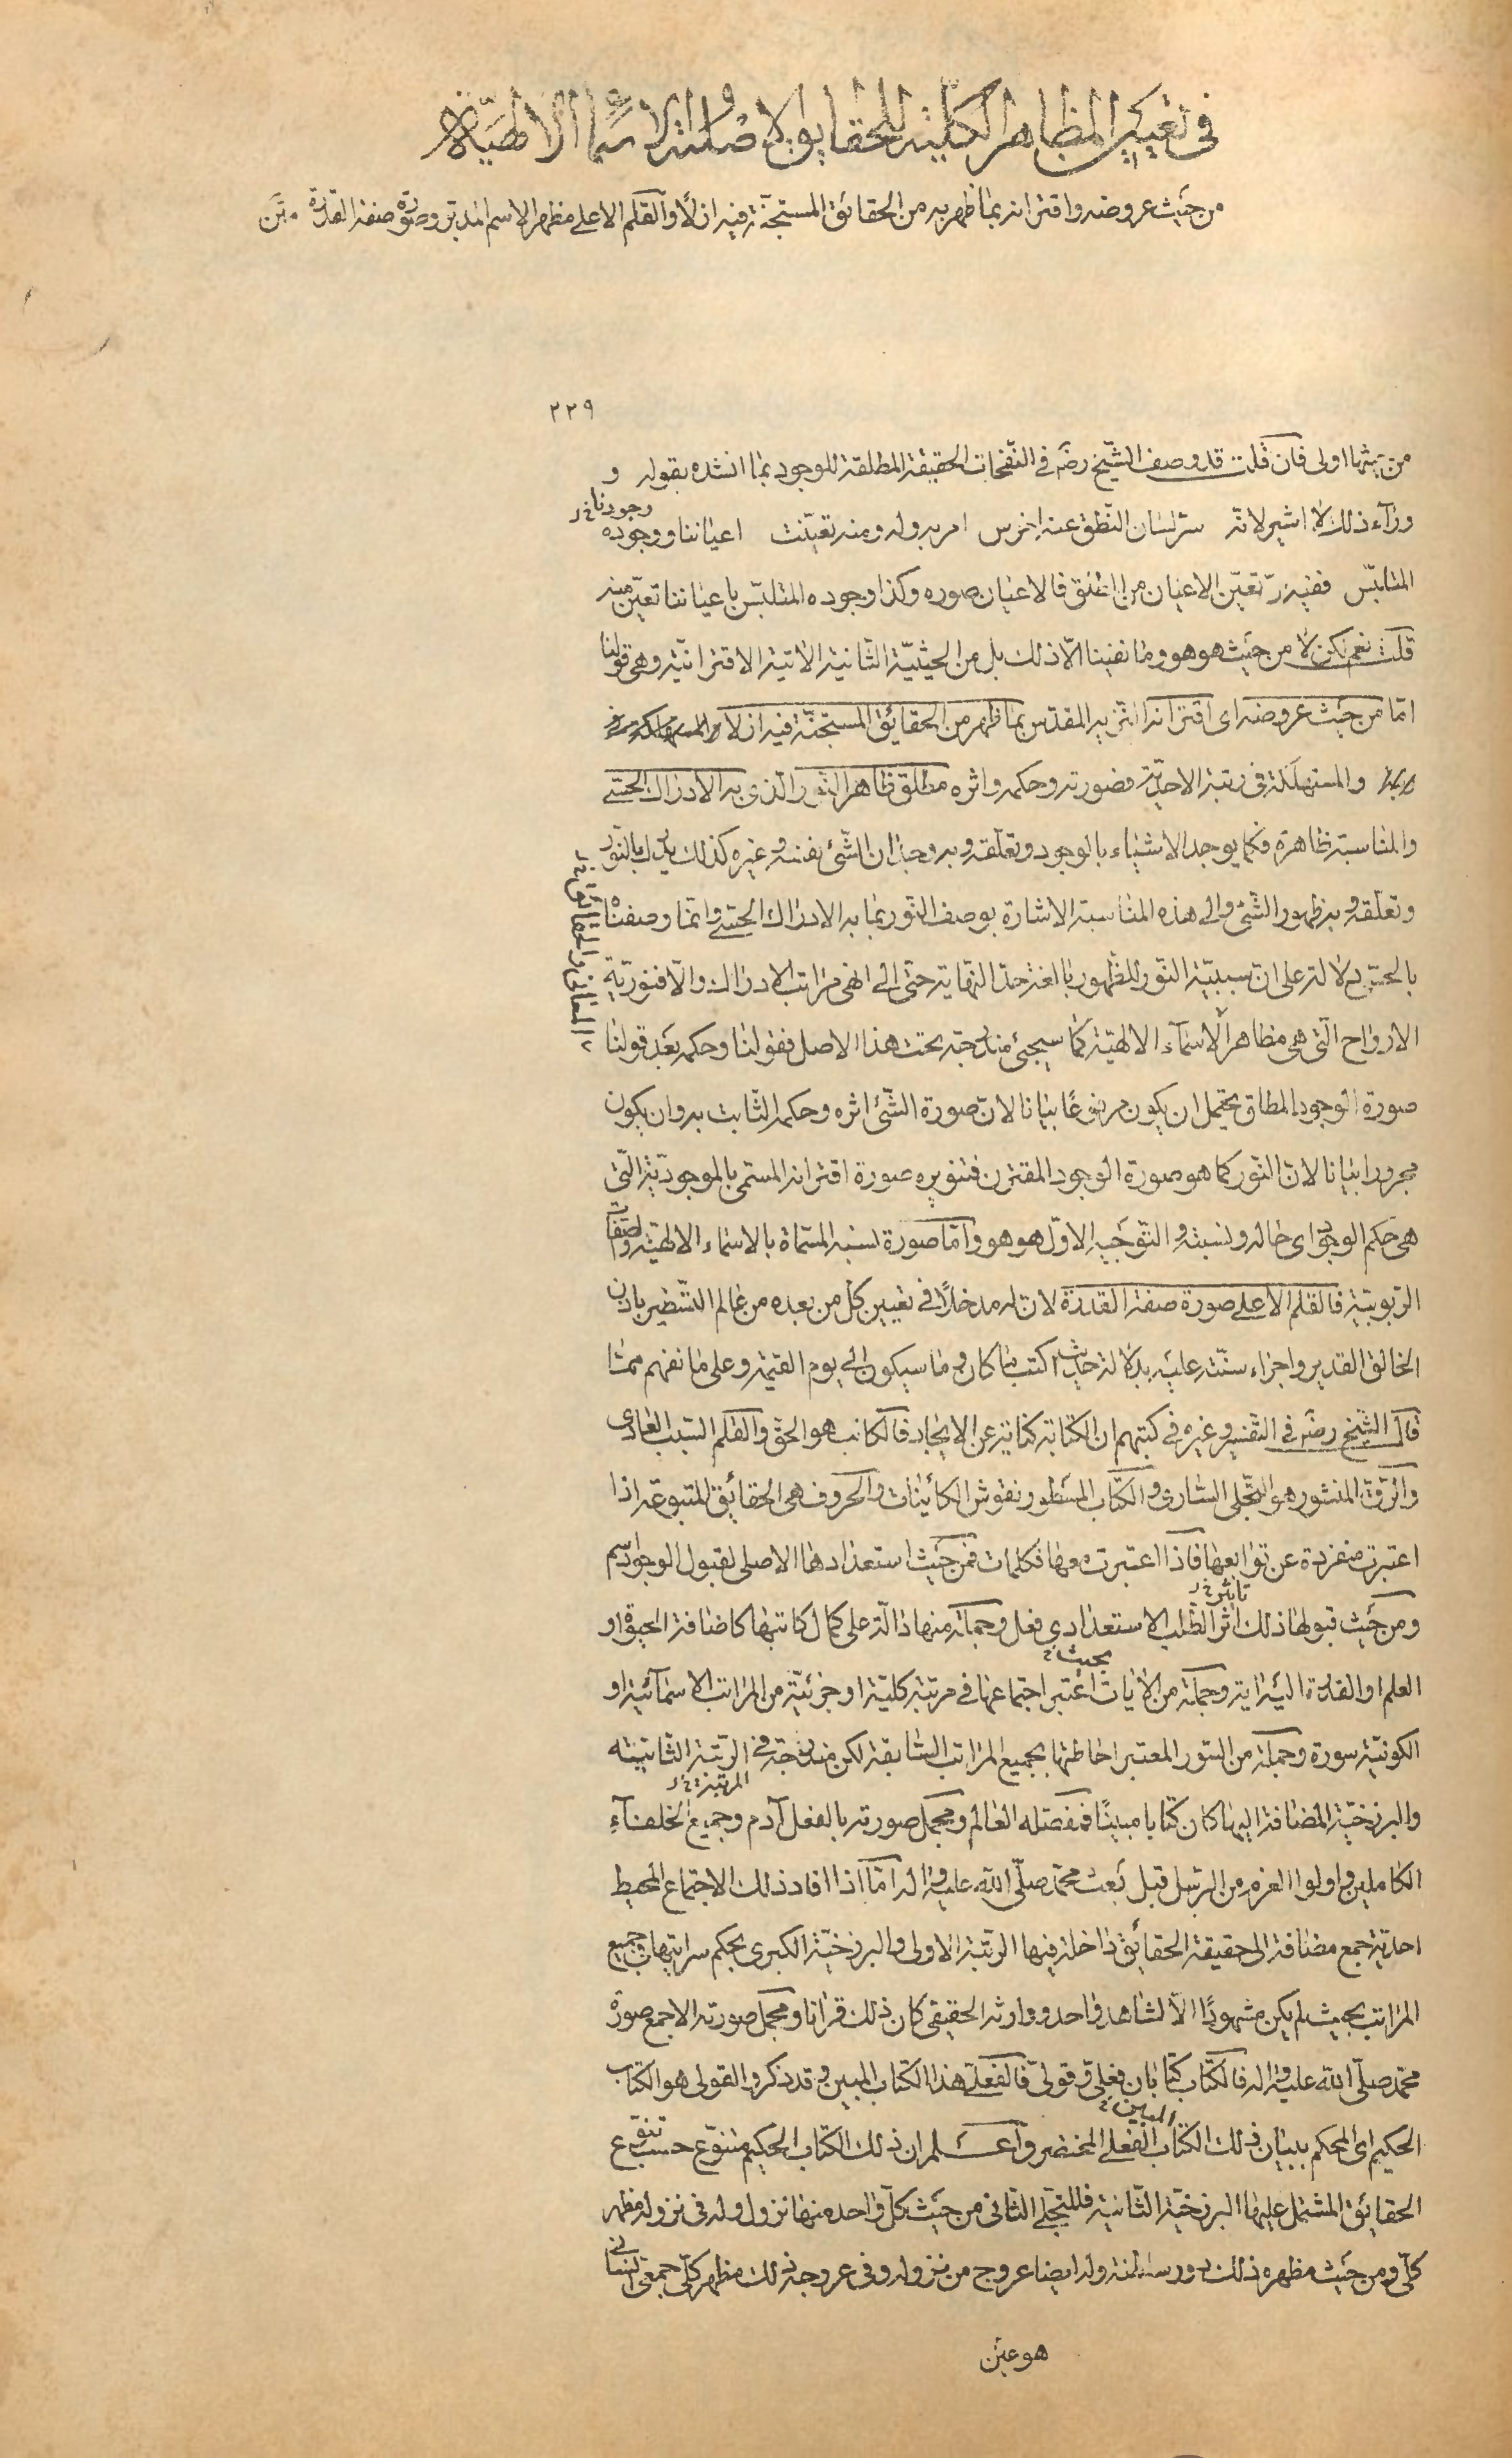 في تعيين المظاهر الكلية للحقايق الاصلية والاسماء الالهية
من حيث عروضه واقترانه بما ظهر به من الحقائق المستجنّة فيه ازلاً والقلم الاعلى مظهر الاسم المدبّر وصورة صفة القدرة متن
٢٢٩
اولى فان قلت قد وصف الشّيخ رضه في النّفحات الحقيقة المطلقة للوجود بما انشده بقوله و
وراء ذلك لا اشير لانّه سرّ لسان النّطق عنه اخرس امر به وله ومنه تعيّنت اعياننا ووجوده
وجودنا خ ل
المتلبّس ففيه تعيّن الاعيان من فالاعيان صوره وكذا وجوده المتلبّس باعياننا تعيّن منه
قلت نعم لكن لا من حيث هو هو وما نفينا الّا ذلك بل من الحيثيّة الثّانية الاتية الاقترانيّة وهي قولنا
امّا من حيث عروضه اى اقترانه المقدّس بما ظهر من الحقائق المستجنّة فيه ازلا
والمستهلكة في رتبة الاحديّة فصورته وحكمه واثره مطلق ظاهر النّور الّذى به الادراك الحسّي
والمناسبة ظاهرة فكما يوجد الاشياء بالوجود وتعلّقه وبه وجدان الشّئ نفسه وغيره كذلك يدرك بالنّور
وتعلّقه وبه ظهور الشّئ والى هذه المناسبة الاشارة بوصف النّور بما به الادراك الحسّي وانّما وصفناه
بالحسّي دلالة على ان سببيّة النّور للظّهور بالغة حدّ النّهاية حتّى الى انهى مراتب الادراك والّا فنوريّة
المعانى والحقائق خ ل
الارواح الّتي هي مظاهر الاسماء الالهيّة كما سيجئ مندرجة تحت هذا الاصل فقولنا وحكمه بعد قولنا
صورة الوجود المطلق يحتمل ان يكون مرفوعًا بيانا لانّ صورة الشّئ اثره وحكمه الثّابت به وان يكون
مجرورا بيانا لانّ النّور كما هو صورة الوجود المقترن فتنويره صورة اقترانه المسمّى بالموجوديّة الّتي
هي حكم الوجود اى حاله ونسبته والتّوجيه الاوّل هو هو وامّا صورة نسبه المسمّاة بالاسماء الالهيّة والصّفات
الرّبوبيّة فالقلم الاعلى صورة صفة القدرة لانّ له مدخلاً في تعيين كلّ من بعده من عالم التّسطير باذن
الخالق القدير واجراء سنّته عليه بدلالة حديث اكتب ما كان وما سيكون الى يوم القيمة وعلى ما نفهم ممّا
قال الشّيخ رضه في التّفسير وغيره في كتبهم ان الكتابة كناية عن الايجاد فالكاتب هو الحق والقلم السّبب العادى
والرّق المنشور هو التّجلى السّارى والكتاب المسطور نقوش الكائينات والحروف هي الحقائق المتبوعة اذا
اعتبرت منفردة عن توابعها فاذا اعتبرت معها فكلمات فمن حيث استعدادها الاصلى لقبول الوجود اسم
ومن حيث قبولها ذلك اثر الطّلب الاستعدادي فعل وجملة منها دالّة على كمال كاتبها كاضافة الحيوة او
تاثير خ ل
العلم او القدرة اليه اية وجملة من الايات اعتبر اجتماعها في مرتبة كليّة او جزئيّة من المراتب الاسمائيّة او
بحيث خ
الكونيّة سورة وجملة من السّور المعتبر احاطتها بجميع المراتب السّابقة لكن مندرجة في الرّتبة الثّانيته
المرتبة خ ل
والبرزخيّة المضافة اليها كان كتابا مبينًا فمفصّله العالم ومجمل صورته بالفعل آدم وجميع الخلفآء
الكاملين واولوا العزم من الرّسل قبل بعث محمّد صلّى الله عليه واله امّا اذا افاد ذلك الاجتماع المحيط
احديّة جمع مضافة الى حقيقة الحقائق داخلة فيها الرّتبة الاولى والبرزخيّة الكبرى بحكم سرايتها في جميع
المراتب بحيث لم يكن مشهودًا الّا لشاهد واحد ووارثه الحقيقى كان ذلك قرانا ومجمل صورته الاجمع صورة
محمّد صلّى الله عليه واله فالكتاب كتابان فعلىّ وقولىّ فالفعلى هذا الكتاب المبين وقد ذكر والقولى هو الكتاب
الحكيم اى المحكم ببيان ذلك الكتاب الفعلى المختصر واعلم ان ذلك الكتاب الحكيم متنوّع حسب تنوّع
المبين خ
الحقائق المشتمل عليها البرزخيّة الثّانية فللتّجلى الثّانى من حيث كلّ واحده منها نزول وله في نزوله مظهر
كلّى ومن حيث مظهره ذلك دور سلطنة وله ايضا عروج من نزوله وفي عروجه ذلك مظهر كلّى جمعى انسانى
هو عين